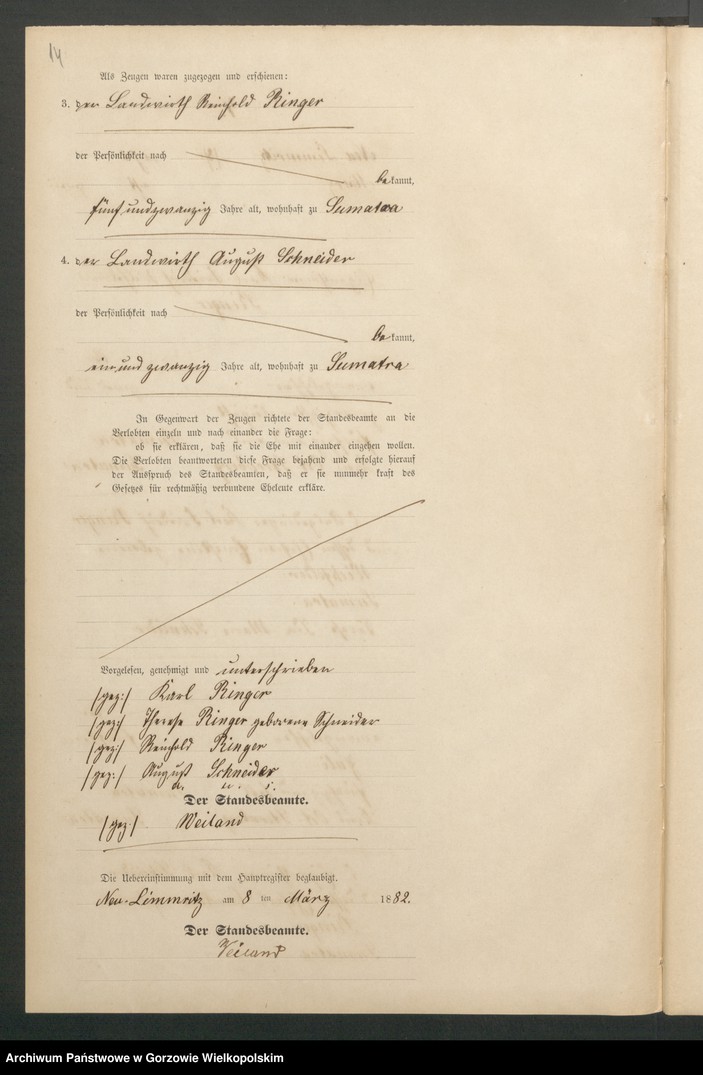 14
Als Zeugen waren zugezogen und erschienen:
3. der Landwirth Reinhold Ringer
der Persönlichkeit nach
bekannt,
fünfundzwanzig Jahre alt, wohnhaft zu Sumatra
4. der Landwirth August Schneider
der Persönlichkeit nach
bekannt,
einundzwanzig Jahre alt, wohnhaft zu Sumatra
In Gegenwart der Zeugen richtete der Standesbeamte an die
Verlobten einzeln und nach einander die Frage:
ob sie erklären, daß sie die Ehe mit einander eingehen wollen.
Die Verlobten beantworteten diese Frage bejahend und erfolgte hierauf
der Ausspruch des Standesbeamten, daß er sie nunmehr kraft des
Gesetzes für rechtmäßig verbundene Eheleute erkläre.
Vorgelesen, genehmigt und unterschrieben
/gez:/ Karl Ringer
/gez:/ Therese Ringer geborene Schneider
/gez:/ Reinhold Ringer
/gez:/ August Schneider
Der Standesbeamte.
/gez/ Weiland
Die Uebereinstimmung mit dem Hauptregister beglaubigt.
Neu-Limmritz am 8 ten März 1882.
Der Standesbeamte.
Weiland
Archiwum Państwowe w Gorzowie Wielkopolskim